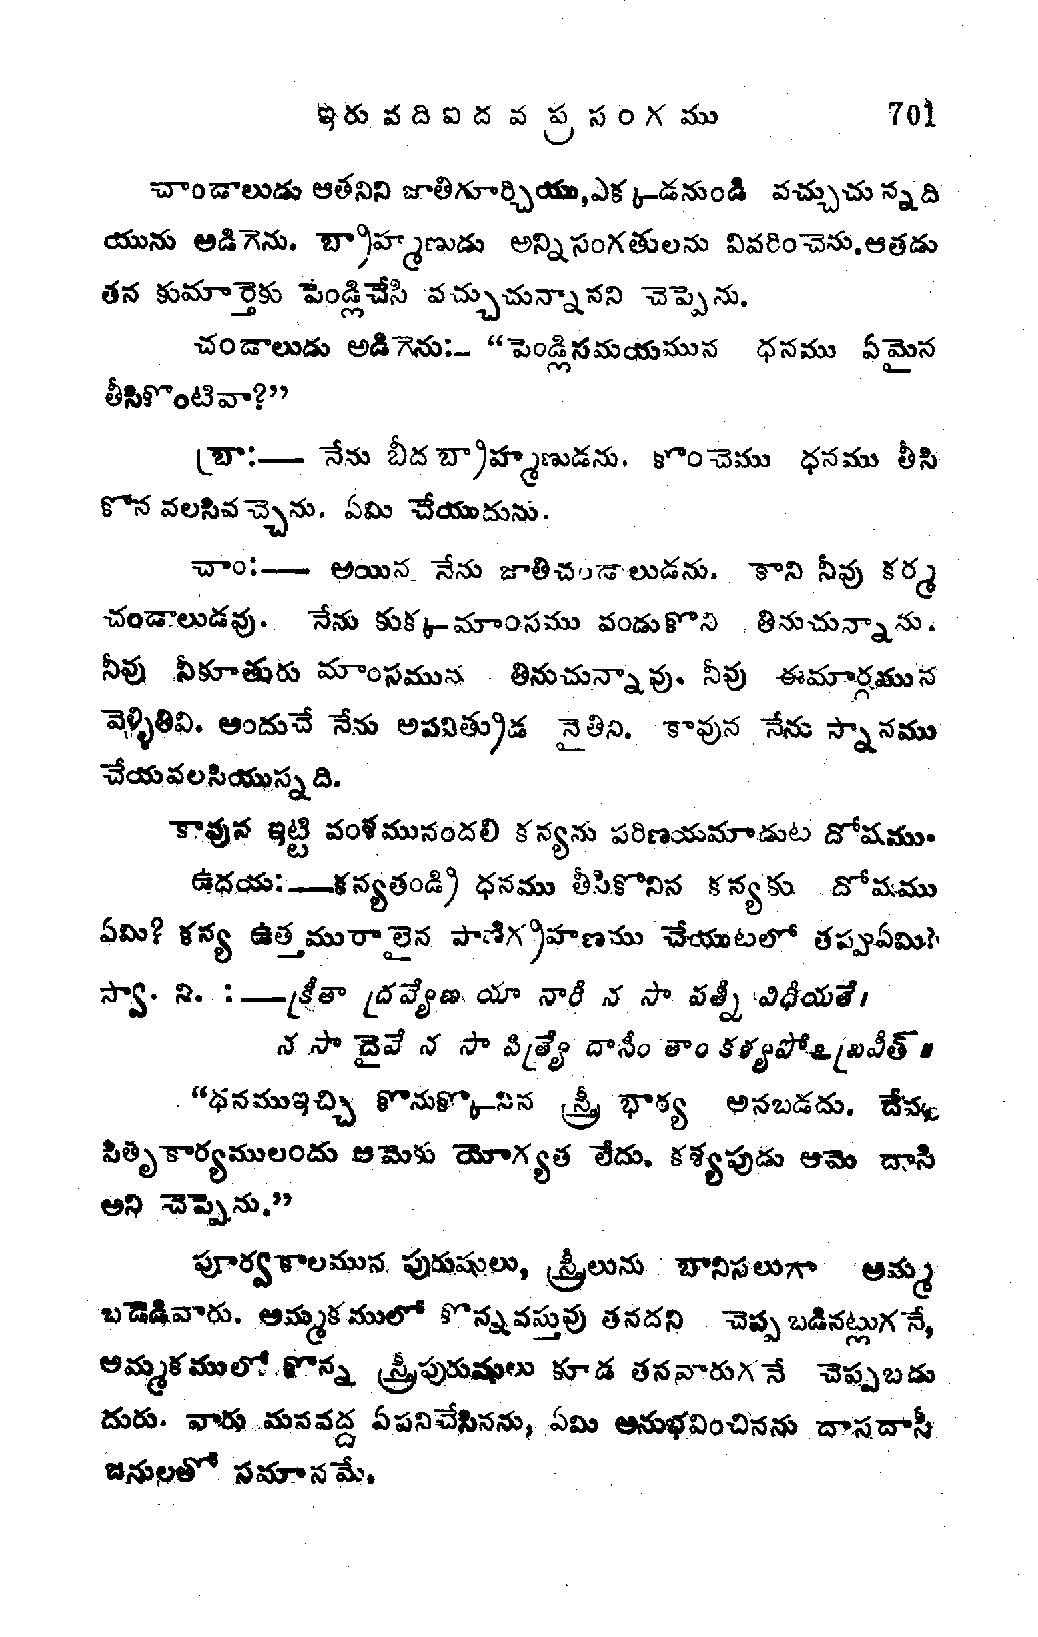 ఇరువదిఐదవ ప్రసంగము 701
చాండాలుడు ఆతనిని జాతిగూర్చియు,ఎక్కడనుండి వచ్చుచున్నది
యును అడిగెను. బ్రాహ్మణుడు అన్నిసంగతులను వివరించెను.ఆతడు
తన కుమార్తెకు పెండ్లిచేసి వచ్చుచున్నానని చెప్పెను.
చండాలుడు అడిగెను:– “పెండ్లిసమయమున ధనము ఏమైన
తీసికొంటివా?”
బ్రా:— నేను బీద బ్రాహ్మణుడను. కొంచెము ధనము తీసి
కొన వలసివచ్చెను. ఏమి చేయుదును.
చాం:— అయిన నేను జాతిచండాలుడను. కాని నీవు కర్మ
చండాలుడవు. నేను కుక్కమాంసము వండుకొని తినుచున్నాను.
నీవు నీకూతురు మాంసమున తినుచున్నావు. నీవు ఈమార్గమున
వెళ్ళితివి. అందుచే నేను అపవిత్రుడ నైతిని. కావున నేను స్నానము
చేయవలసియున్నది.
కావున ఇట్టి వంశమునందలి కన్యను పరిణయమాడుట దోషము.
ఉధయ:—కన్యతండ్రి ధనము తీసికొనిన కన్యకు దోషము
ఏమి? కన్య ఉత్తమురాలైన పాణిగ్రహణము చేయుటలో తప్పుఏమి?
స్వా. ని. :—క్రీతా ద్రవ్యేణ యా నారీ న సా పత్నీ విధీయతే।
న సా దైవే న సా పిత్ర్యే దాసీం తాం కశ్యపోఽబ్రవీత్॥
“ధనముఇచ్చి కొనుక్కొనిన స్త్రీ భార్య అనబడదు. దేవ
పితృకార్యములందు ఆమెకు యోగ్యత లేదు. కశ్యపుడు ఆమె దాసి
అని చెప్పెను.”
పూర్వకాలమున పురుషులు, స్త్రీలును బానిసలుగా అమ్మ
బడెడివారు. అమ్మకములో కొన్నవస్తువు తనదని చెప్పబడినట్లుగనే,
అమ్మకములో కొన్న స్త్రీపురుషులు కూడ తనవారుగనే చెప్పబడు
దురు. వారు మనవద్ద ఏపనిచేసినను, ఏమి అనుభవించినను దాసదాసీ
జనులతో సమానమే.